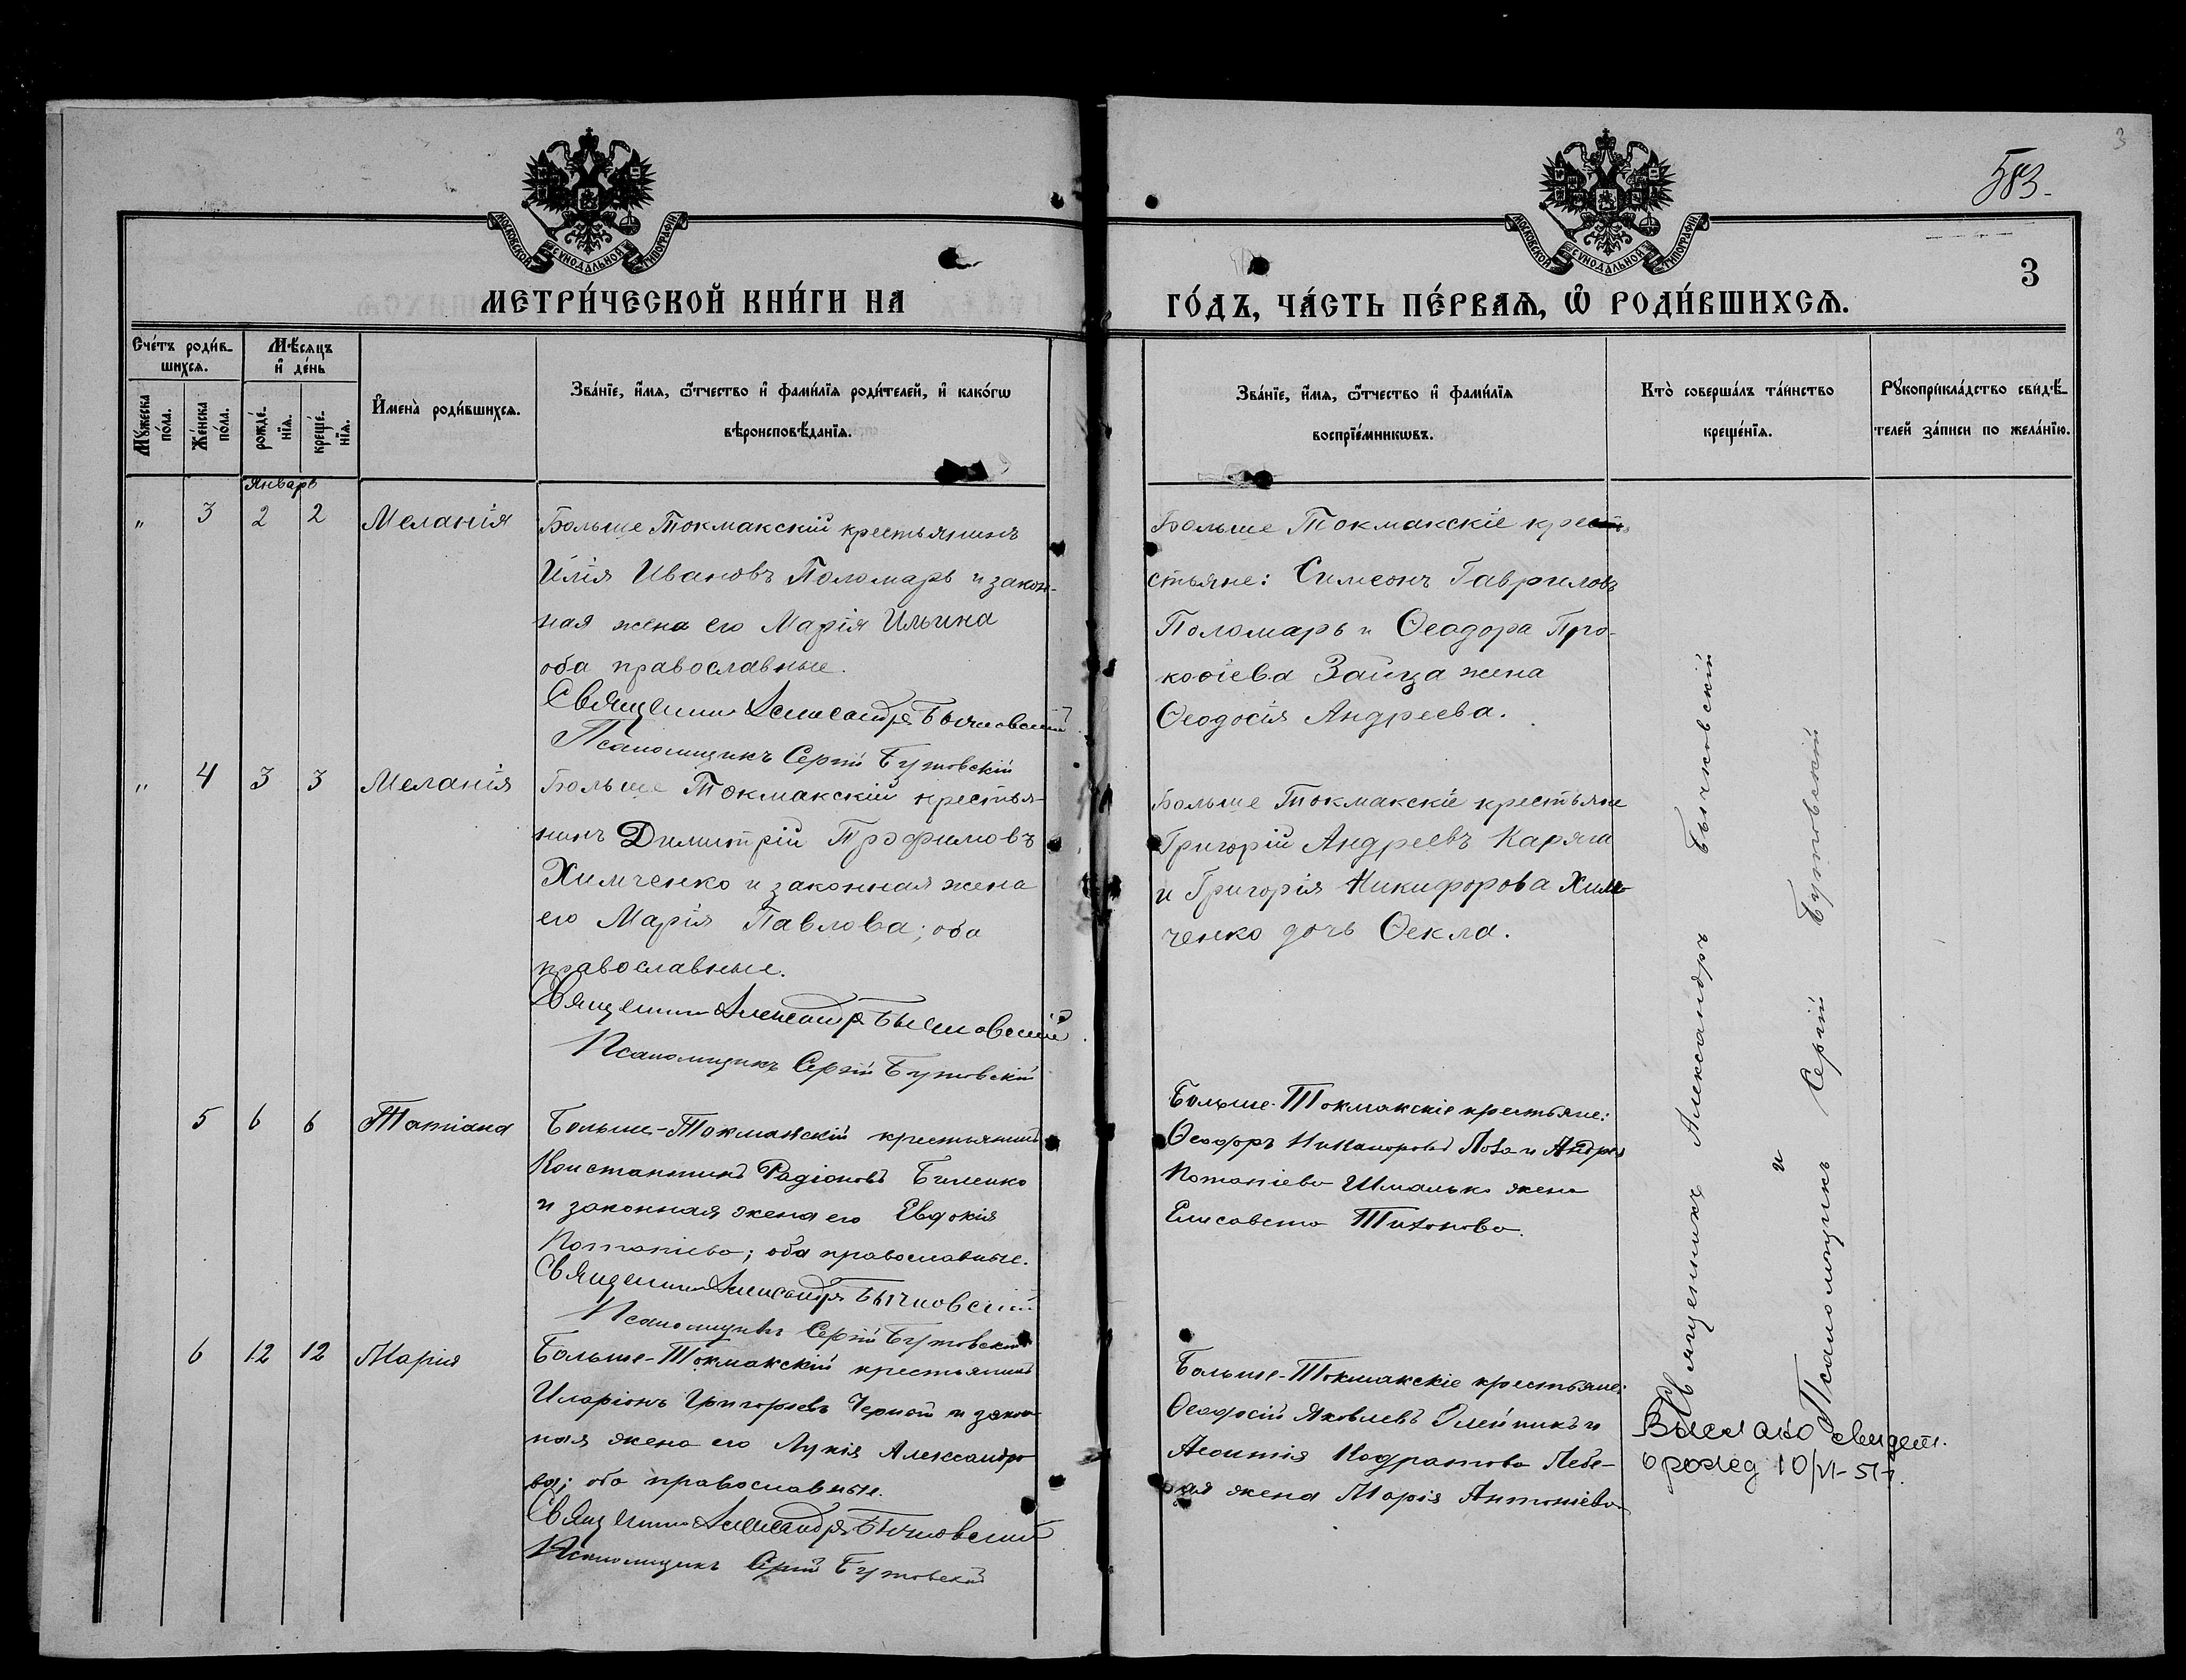 3
583-
МОСКОВСКОЙ СѴНОДАЛЬНОЙ ТИПОГРАФІИ
МОСКОВСКОЙ СѴНОДАЛЬНОЙ ТИПОГРАФІИ
3
МЕТРИ́ЧЕСКОЙ КНИ́ГИ НА
ГО́ДЪ, ЧА́СТЬ ПЕ́РВАѦ, Ѽ РОДИ́ВШИХСѦ.
Сче́тъ роди́в-
шихсѧ.
Мѣ́сѧцъ
и҆ де́нь
Мꙋ́жеска
по́ла.
Же́нска
по́ла.
рожде́-
нїѧ.
креще́-
нїѧ.
И҆мена̀ роди́вшихсѧ.
Зва́нїе, и҆́мѧ, ѻ҆́тчество и҆ фами́лїѧ роди́телей, и҆ како́гѡ
вѣроисповѣ́данїѧ.
Зва́нїе, и҆́мѧ, ѻ҆́тчество и҆ фами́лїѧ
воспрїе́мникѡвъ.
Кто̀ соверша́лъ та́инство
креще́нїѧ.
Рꙋкоприкла́дство свидѣ́-
телей за́писи по жела́нїю.
Январь
" 3 2 2 Меланія
Больше Токмакскій крестьянинъ
Илія Ивановъ Поломарь и закон-
ная жена его Марія Ильина
оба православные.
Священникъ Александръ Бычковскій
Псаломщикъ Сергій Бутовскій
Больше Токмакскіе кре
стьяне: Симеонъ Гавриловъ
Поломарь и Ѳеодора Про-
кофіева Зайца жена
Ѳеодосія Андреева.
" 4 3 3 Меланія
Больше Токмакскій крестья-
нинъ Димитрій Трофимовъ
Химченко и законная жена
его Марія Павлова; оба
православные.
Священникъ Александръ Бычковскій
Псаломщикъ Сергій Бутовскій
Больше Токмакскіе крестьяне
Григорій Андреевъ Каряга
и Григорія Никифорова Хим-
ченко дочь Ѳекла.
5 6 6 Татіана
Больше-Токмакскій крестьянинъ
Константинъ Радіоновъ Биленко
и законная жена его Евдокія
Потапіева; оба православные.
Священникъ Александръ Бычковскій
Псаломщикъ Сергій Бутовскій
Больше-Токмакскіе крестьяне:
Ѳеодоръ Никаноровъ Лоза и Андрея
Потапіева Шмалько жена
Елисавета Тихонова.
6 12 12 Марія
Больше-Токмакскій крестьянинъ
Иларіонъ Григорьевъ Черный и закон-
ная жена его Лукія Александро
ва; оба православные.
Священникъ Александръ Бычковскій
Псаломщикъ Сергій Бутовскій
Больше-Токмакскіе крестьяне:
Ѳеодосій Яковлевъ Олейникъ и
Кодратова Лебе-
дя жена Марія Антоніева
Священникъ Александръ Бычковскій
и
Псаломщикъ Сергій Бутовскій
Выслано свидет.
о рожд 10/VI-51 г.